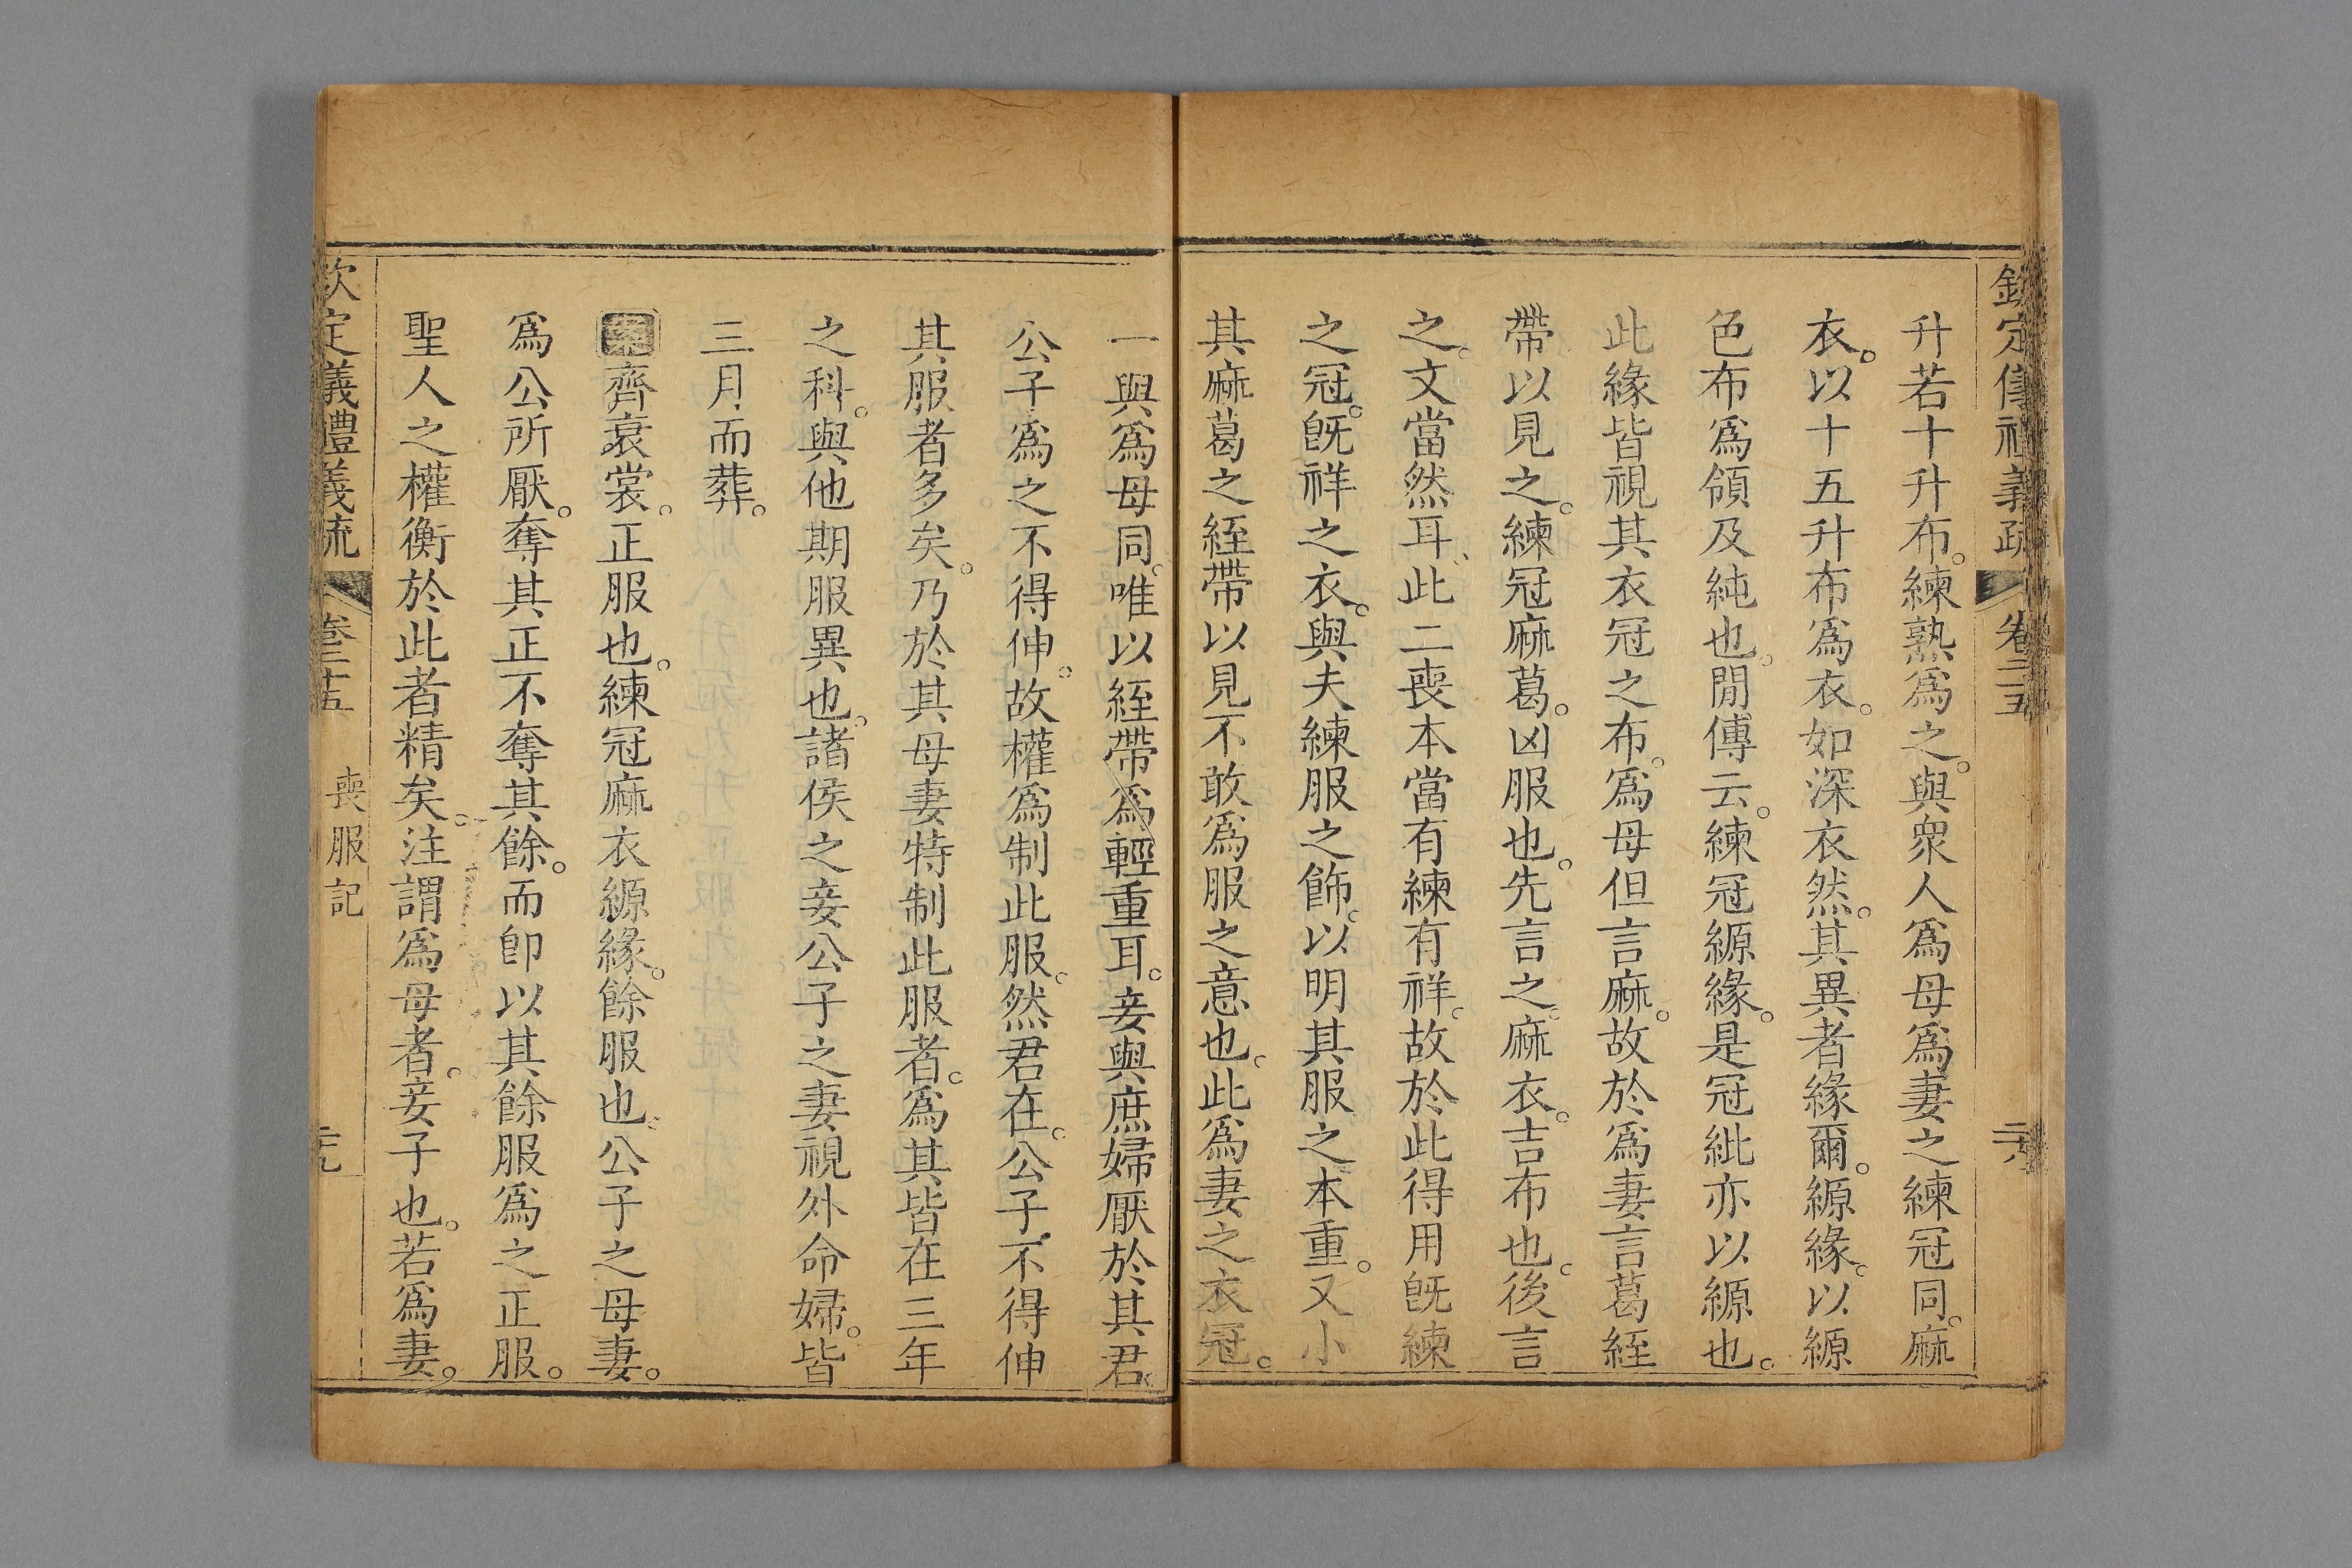 欽定儀禮義疏 卷二十五 二十八
升若十升布。練熟爲之。與衆人爲母爲妻之練冠同。麻
衣。以十五升布爲衣。如深衣然。其異者緣爾。縓緣。以縓
色布爲領及純也。閒傳云。練冠縓緣。是冠紕亦以縓也。
此緣皆視其衣冠之布。爲母但言麻。故於爲妻言葛絰
帶以見之。練冠麻葛。凶服也。先言之。麻衣。吉布也。後言
之。文當然耳、此二喪本當有練有祥。故於此得用旣練
之冠。旣祥之衣。與夫練服之飾。以明其服之本重。又小
其麻葛之絰帶以見不敢爲服之意也。此爲妻之衣冠。
一與爲母同。唯以絰帶爲輕重耳。妾與庶婦厭於其君。
公子爲之不得伸。故權爲制此服。然君在。公子不得伸
其服者多矣。乃於其母妻特制此服者。爲其皆在三年
之科。與他期服異也。諸侯之妾公子之妻視外命婦。皆
三月而葬。
案齊衰裳。正服也。練冠麻衣縓緣。餘服也。公子之母妻。
爲公所厭。奪其正不奪其餘。而卽以其餘服爲之正服。
聖人之權衡於此者精矣。注謂爲母者。妾子也。若爲妻。
欽定儀禮義疏 卷二十五 喪服記 二十九